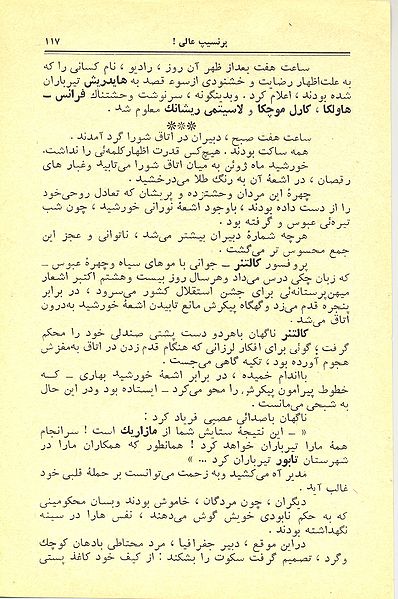 پرنسیپ عالی !
۱۱۷
ساعت هفت بعداز ظهر آن روز ، رادیو ، نام کسانی را که
به علت‌اظهار رضایت و خشنودی ازسوء قصد به هایدریش تیرباران
شده بودند ، اعلام کرد . وبدینگونه ، سرنوشت وحشتناك فرانس ــ
هاولکا ، کارل موچکا و لاسیتمی ریشانك معلوم شد .
***
ساعت هفت صبح ، دبیران در اتاق شورا گرد آمدند .
همه ساکت بودند . هیچ‌کس قدرت اظهارکلمه‌ئی را نداشت.
خورشید ماه ژوئن به میان اتاق شورا می‌تابید وغبار های
رقصان ، در اشعهٔ آن به رنگ طلا می‌درخشید .
چهرهٔ این مردان وحشتزده و پریشان که تعادل روحی‌خود
را از دست داده بودند ، باوجود اشعهٔ نورانی خورشید ، چون شب
تیره‌ئی عبوس و گرفته بود .
هرچه شمارهٔ دبیران بیشتر می‌شد ، ناتوانی و عجز این
جمع محسوس تر می‌گشت .
پروفسور کالتنر ــ جوانی با موهای سیاه وچهرهٔ عبوس ــ
که زبان چکی درس می‌داد وهرسال روز بیست وهشتم اکتبر اشعار
میهن‌پرستانه‌ئی برای جشن استقلال کشور می‌سرود ، در برابر
پنجره قدم می‌زد وگهگاه پیکرش مانع تابیدن اشعهٔ خورشید به‌درون
اتاق می‌شد .
کالتنر ناگهان باهردو دست پشتی صندلی خود را محکم
گرفت ؛ گوئی برای افکار لرزانی که هنگام قدم زدن در اتاق به‌مغزش
هجوم آورده بود ، تکیه گاهی می‌جست .
بااندام خمیده ، در برابر اشعهٔ خورشید بهاری ــ کــه
خطوط پیرامون پیکرش را محو می‌کرد ــ ایستاده بود ودر این حال
به شبحی می‌مانست .
ناگهان باصدائی عصبی فریاد کرد :
« ــ این نتیجهٔ ستایش شما از مازاریك است ! سرانجام
همهٔ مارا تیرباران خواهد کرد ! همانطور که همکاران مارا در
شهرستان تابور تیرباران کرد ... »
مدیر آه می‌کشید وبه زحمت می‌توانست بر حملهٔ قلبی خود
غالب آید .
دیگران ، چون مردگان ، خاموش بودند وبسان محکومینی
که به حکم نابودی خویش گوش می‌دهند ، نفس هارا در سینه
نگهداشته بودند .
دراین موقع ، دبیر جغرافیا ، مرد محتاطی بادهان کوچك
وگرد ، تصمیم گرفت سکوت را بشکند : از کیف خود کاغذ پستی